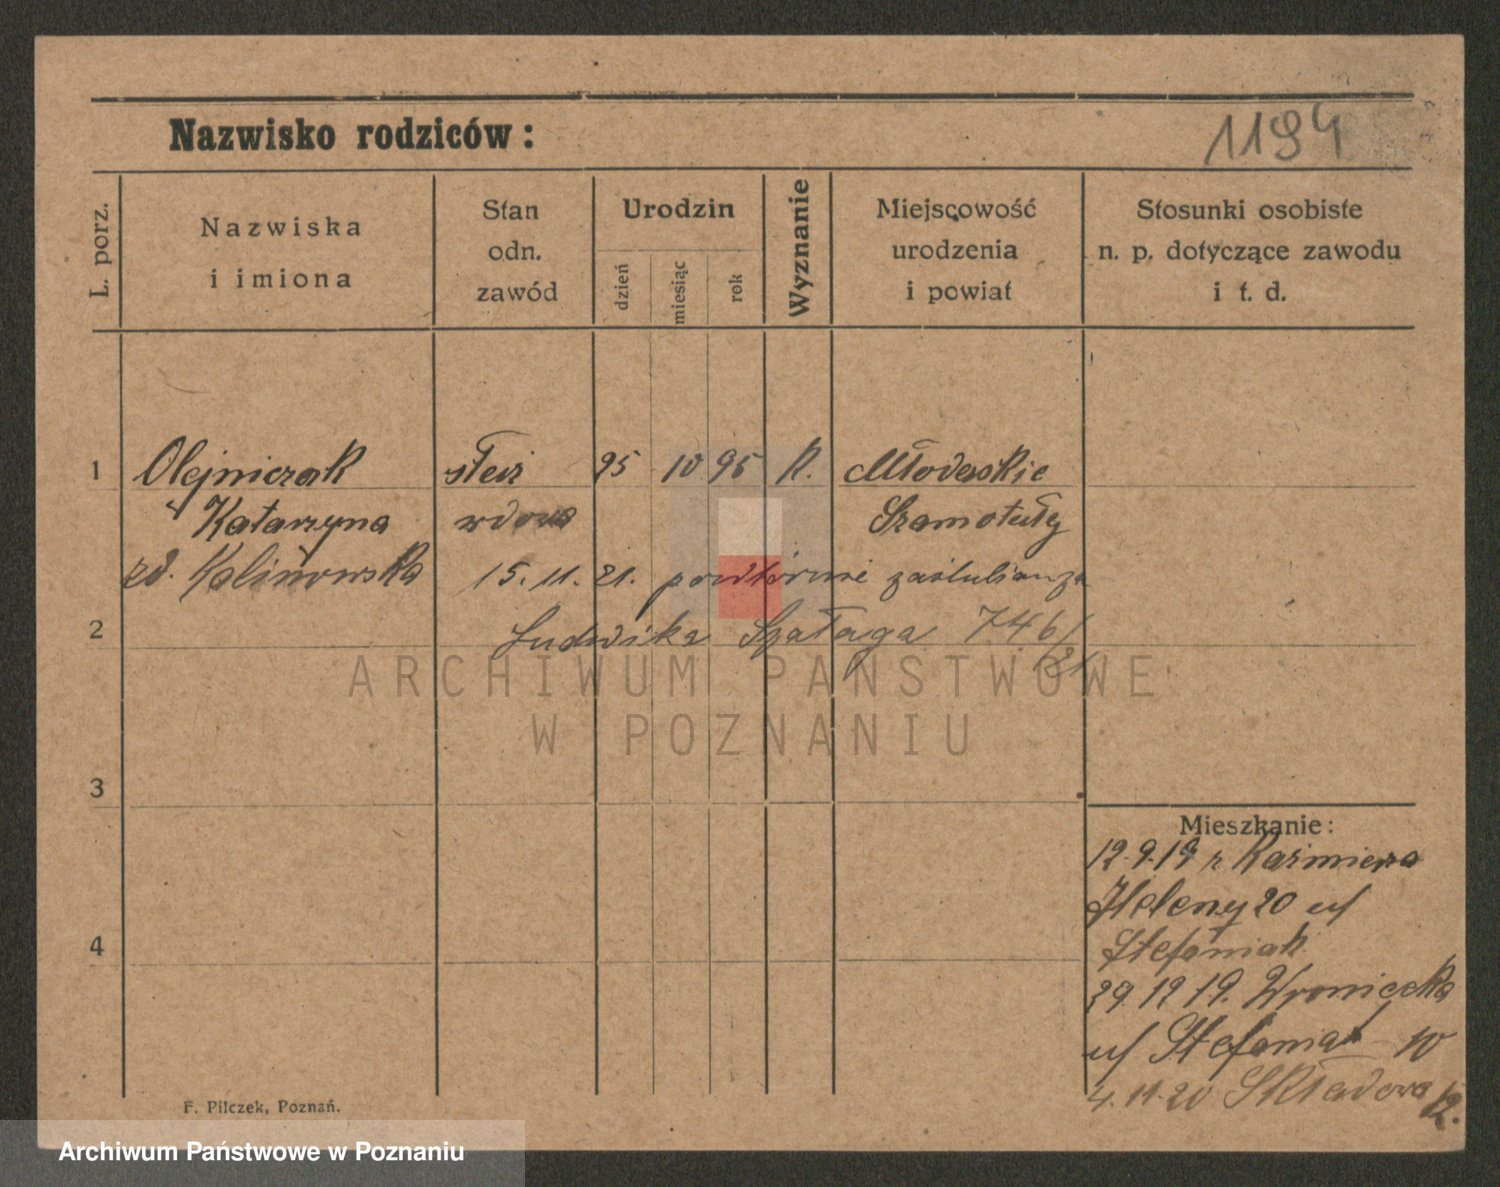 1194
Nazwisko rodziców:
L. porz.
Nazwiska
i imiona
Stan
odn.
zawód
Urodzin
dzień
miesiąc
rok
Wyznanie
Miejscowość
urodzenia
i powiat
Stosunki osobiste
n. p. dotyczące zawodu
i t. d.
1 Olejniczak 25 10 95 K.
Katarzyna wdowa Szamotuły
zd. Kalinowska 15.11.21. powtórnie zaślubiona
2 Ludwika 746/21
ARCHIWUM PAŃSTWOWE
W POZNANIU
3
Mieszkanie:
12.9.19 z Kaźmierza
Heleny 20 u/
4 Stefaniak
29.12.19. Wroniecka
u/ Stefaniak 10
4.11.20 Składowa 12.
F. Pilczek, Poznań.
Archiwum Państwowe w Poznaniu